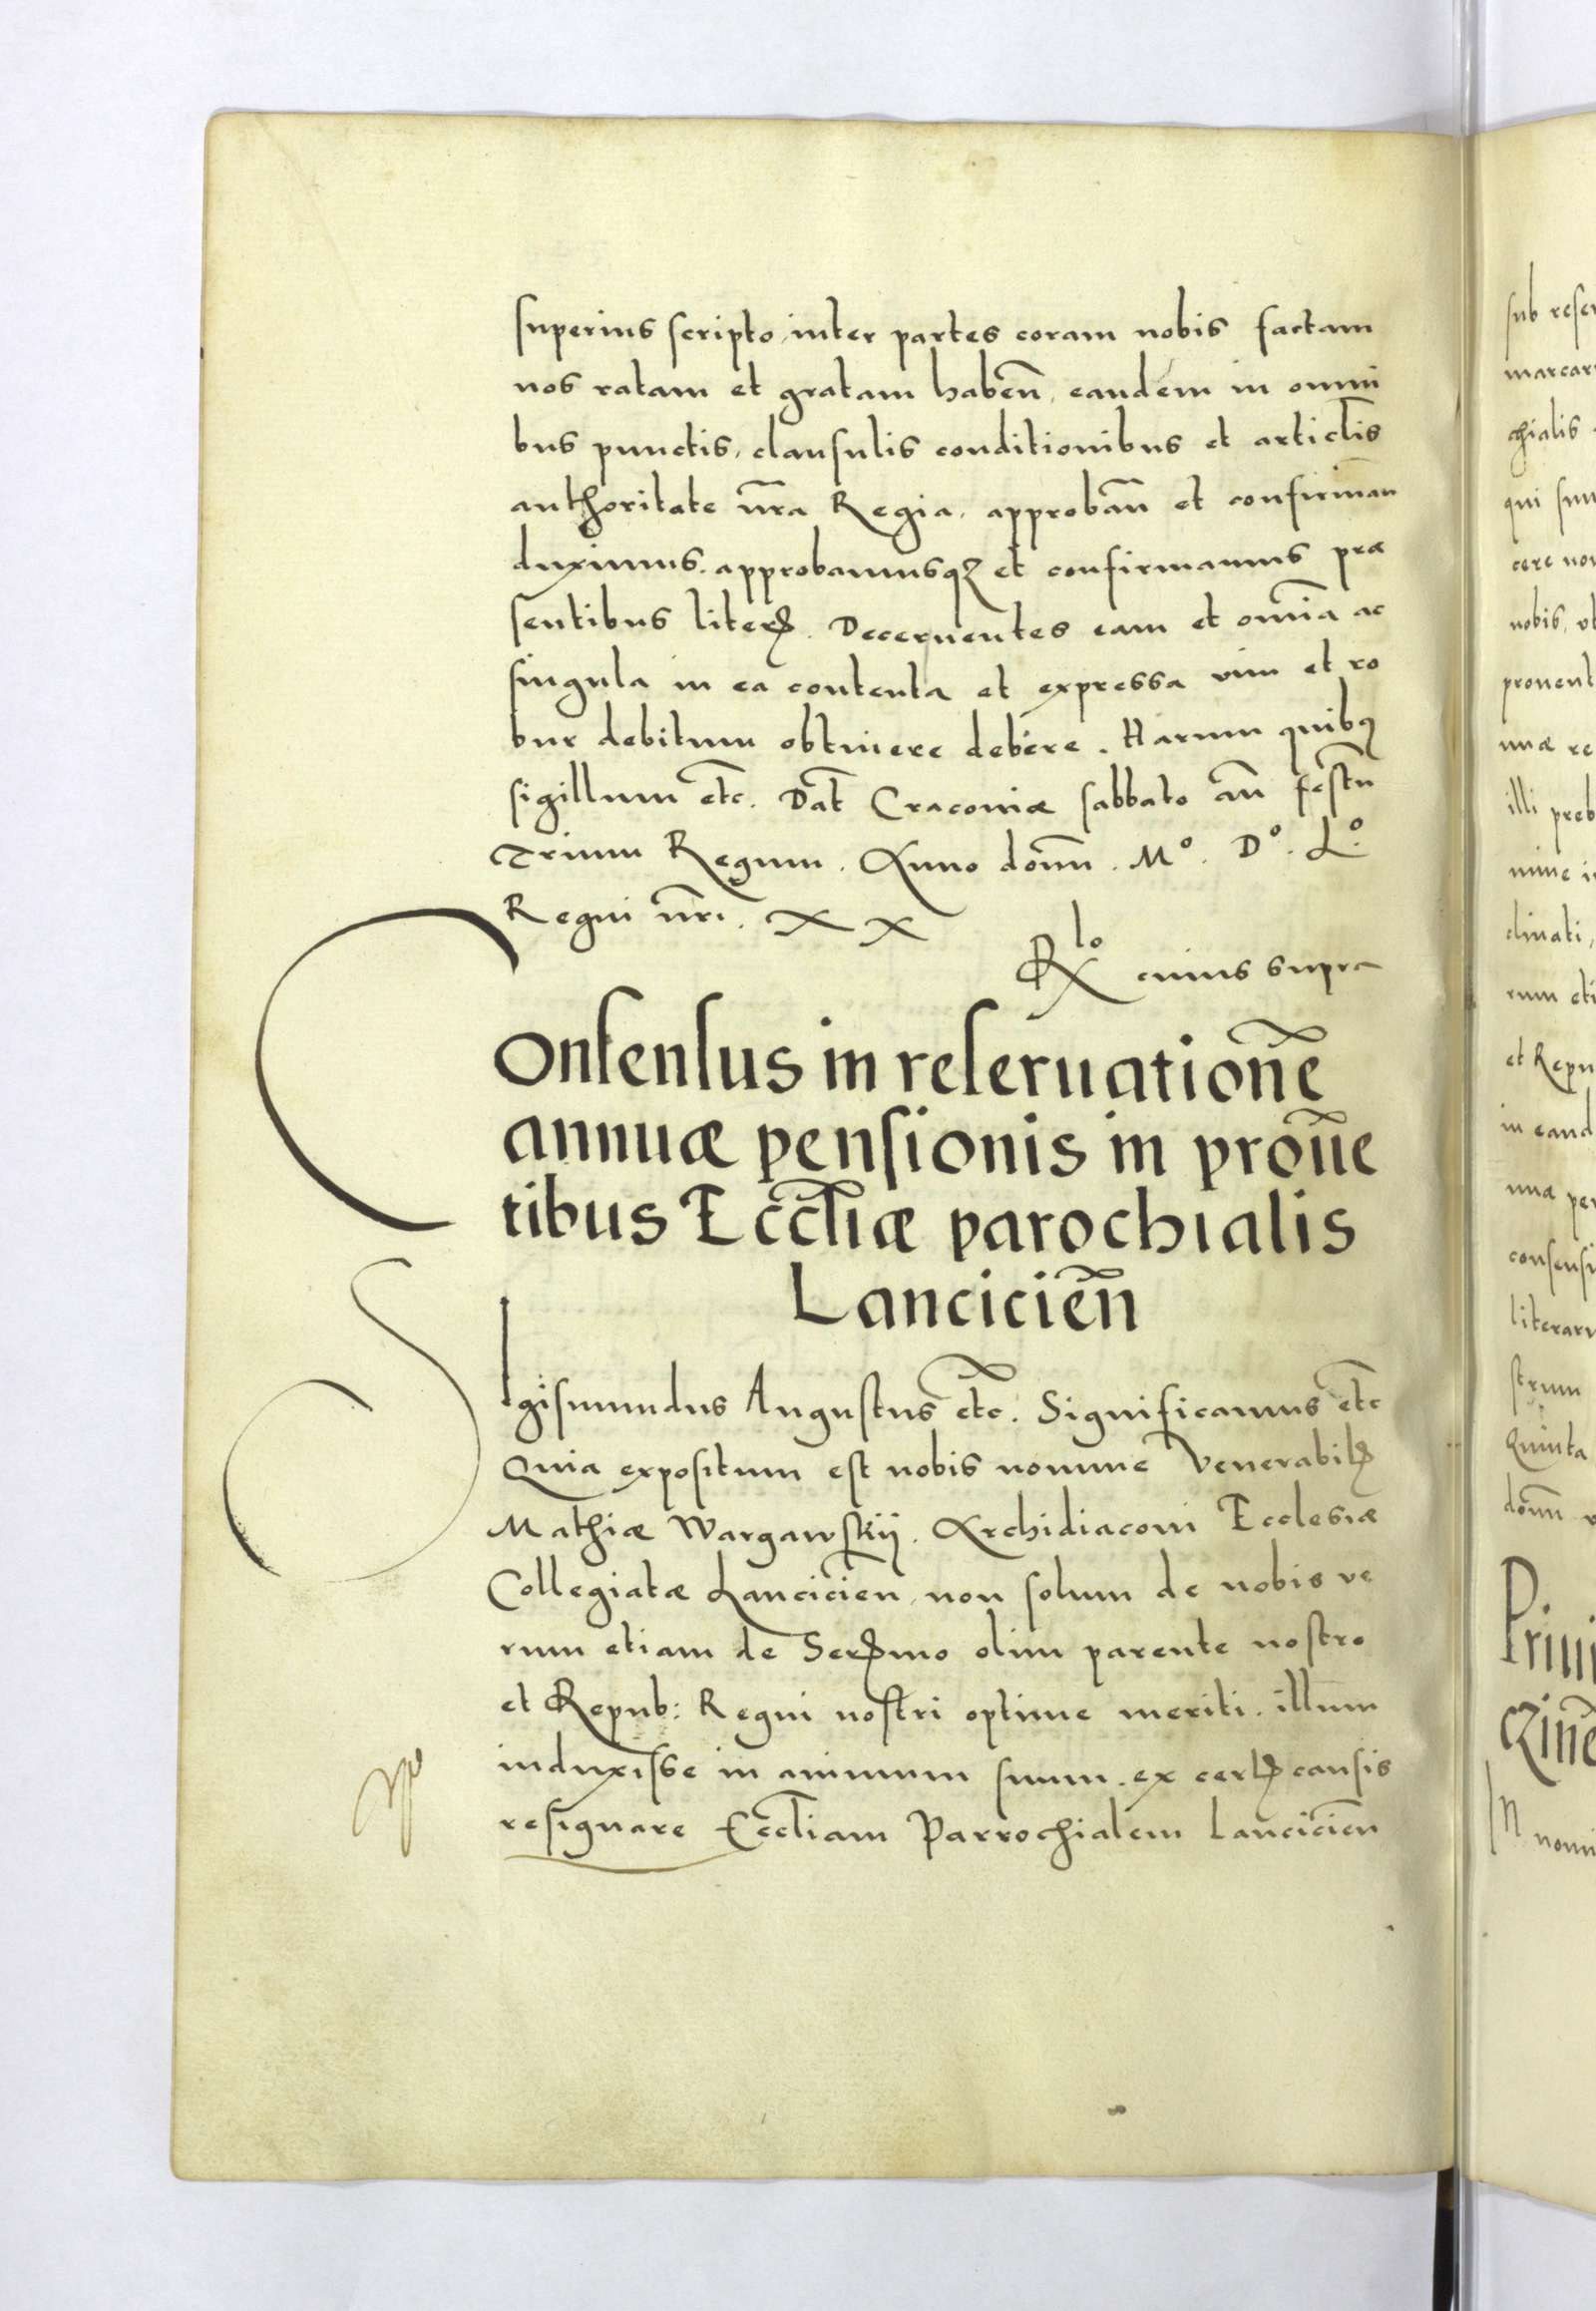 superius scripto, inter partes coram nobis factam
nos ratam et gratam habeñ, eandem in omni
bus punctis, clausulis conditionibus et articlis
authoritate nr̃a Regia, approbañ et confirmañ
duximus. approbamusqz et confirmamus præ
sentibus literꝭ. Decernentes eam et om̃ia ac
singula in ea contenta et expressa vim et ro
bur debitum obtinere debere. Harum quibꝰ
sigillum etc̃. Dat̃ Cracoviæ sabbato añ festũ
Trium Regum. Anno domñ. Mº. Dº. Lº.
Regni nr̃i. XX
Rlo cuius supra
Consensus in reseruationẽ
annuæ pensionis in prouẽ
tibus Eccl̃iæ parochialis
Lancicieñ
Sigismundus Augustus etc̃. Significamus etc̃
Quia expositum est nobis nomine Venerabilꝭ
Mathiæ Wargawskij. Archidiaconi Ecclesiæ
Collegiatæ Lancicien̄, non solum de nobis ve
rum etiam de Serꝭmo olim parente nostro
et Repub: Regni nostri optime meriti. illum
induxisse in animum suum. ex certꝭ causis
resignare Eccl̃iam Parrochialem Lancicien̄
sub reser
marcar
chialis
qui sun
cere non
nobis, vt
prouent
nuæ re
illi preb
mine i
clinati,
rum eti
et Repu
in eand
nua pe
consensu
literaru
strum
Quinta
domñ
Priui
czinẽ
IN nomi